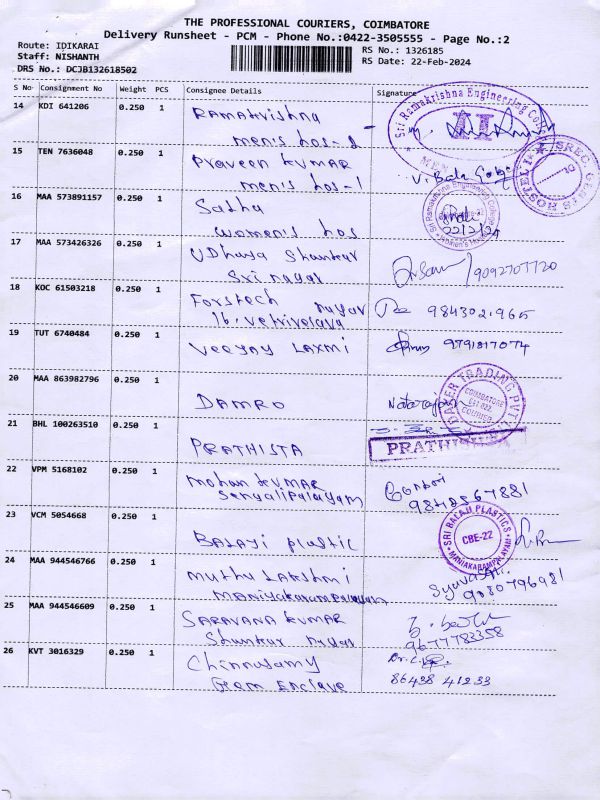 THE PROFESSIONAL COURIERS, COIMBATORE
Delivery Runsheet - PCM - Phone No.:0422-3505555 - Page No.:2
Route: IDIKARAI
RS No.: 1326185
Staff: NISHANTH
RS Date: 22-Feb-2024
DRS No.: DCJB132618502
S No Consignment No Weight PCS Consignee Details Signature
14 KDI 641206 0.250 1 Ramakrishna
men's hos-2
Sri Ramakrishna Engineering
15 TEN 7636048 0.250 1 Praveen KUMAR
men's hos-1 V. Bala
SREC GENTS HOSTEL
16 MAA 573891157 0.250 1 Sadha
women's hos 22/2/24
Sri Ramakrishna Engineering College
17 MAA 573426326 0.250 1 UDhaya Shankar
Sri nagar 9092707720
18 KOC 61503218 0.250 1 Forstech nagar
16, vetrivelava 9843021965
19 TUT 6740484 0.250 1 VEEJAY LAXMI 9791817074
20 MAA 863982796 0.250 1 DAMRO Natarajan
TRADING PVT
COIMBATORE
641 022
21 BHL 100263510 0.250 1 PRATHISTA
PRATHI
22 VPM 5168102 0.250 1 mohan KUMAR
Sengalipalayam 9848567881
23 VCM 5054668 0.250 1 BALAJI plastic
SRI BALAJI PLASTICS
CBE-22
MANIAKARAMPALAYAM
24 MAA 944546766 0.250 1 Muthu Lakshmi
Maniyakarampalayam 9080796981
25 MAA 944546609 0.250 1 SARAVANA KUMAR
Shankar nagar 9677783358
26 KVT 3016329 0.250 1 Chinnusamy
Gem Enclave 86438 41233